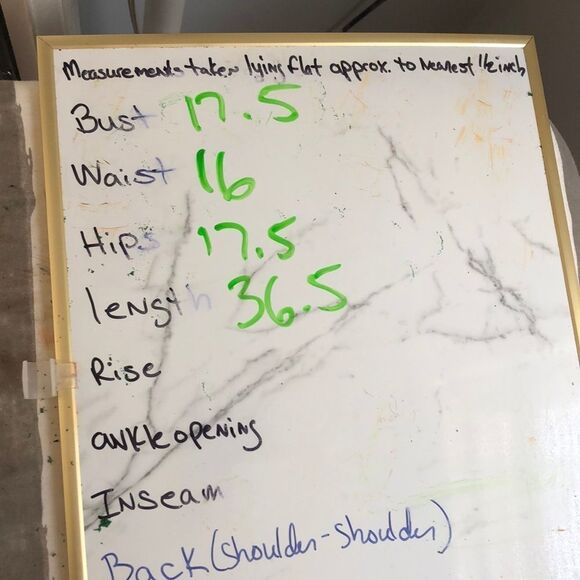 Measurements taken lying flat approx. to nearest 1/2 inch
Bust 17.5
Waist 16
Hips 17.5
length 36.5
Rise
ankle opening
Inseam
Back (shoulder-shoulder)